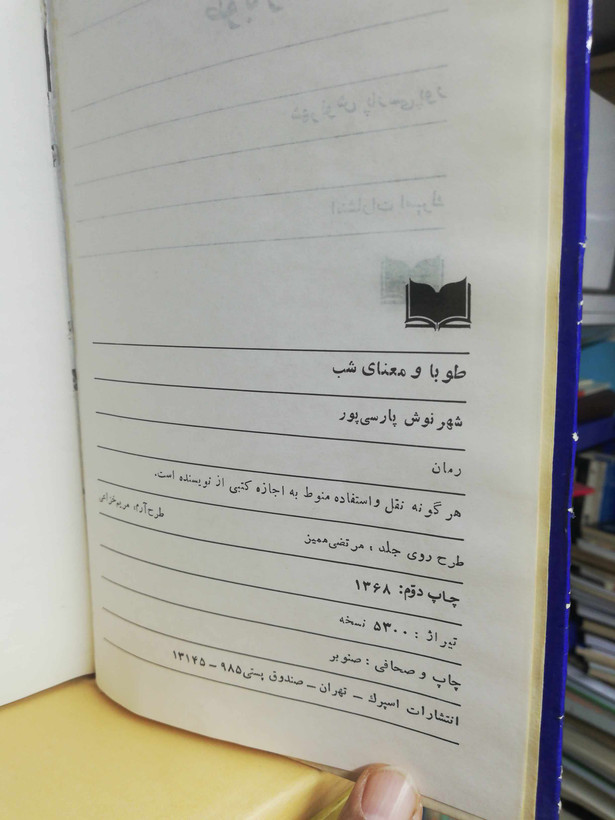 طوبا و معنای شب
شهرنوش پارسی‌پور
رمان
هر گونه نقل و استفاده منوط به اجازه کتبی از نویسنده است.
طرح روی جلد ، مرتضی ممیز
طرح آرم، مریم خزاعی
چاپ دوّم: ۱۳۶۸
تیراژ : ۵۳۰۰ نسخه
چاپ و صحافی : صنوبر
انتشارات اسپرک – تهران – صندوق پستی ۹۸۵ – ۱۳۱۴۵